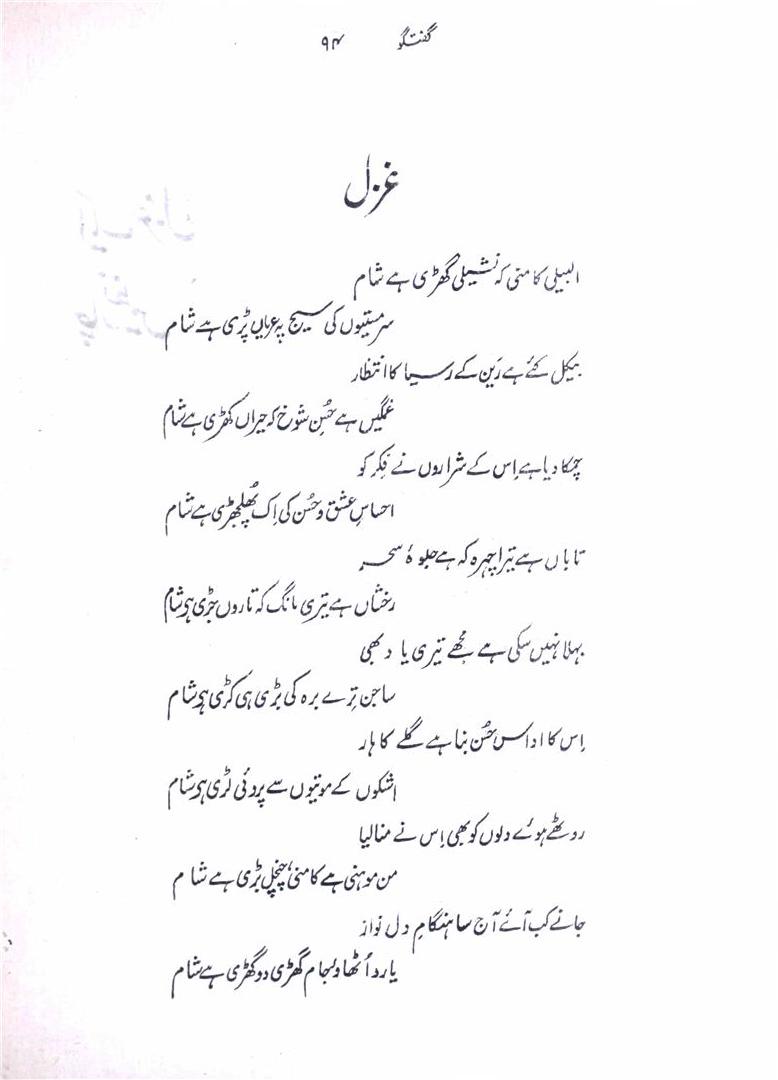 گفتگو ۹۴
غزل
البیلی کامنی کہ نشیلی گھڑی ہے شام
سرمستیوں کی سیج پہ عریاں پڑی ہے شام
بیکل کئے ہے رَین کے رسیا کا انتظار
غمگیں ہے حُسنِ شوخ کہ حیراں کھڑی ہے شام
چمکا دیا ہے اِس کے شراروں نے فِکر کو
احساسِ عشق و حُسن کی اِک پُھلجھڑی ہے شام
تاباں ہے تیرا چہرہ کہ ہے جلوۂ سحر
رخشاں ہے تیری مانگ کہ تاروں جڑی ہی شام
بہلا نہیں سکی ہے مجُھے تیری یاد بھی
ساجن تِرے برہ کی بڑی ہی کڑی ہی شام
اِس کا اداس حُسن بنا ہے گلے کا ہار
اشکوں کے موتیوں سے پروئی لڑی ہی شام
روٹھے ہوئے دلوں کو بھی اِس نے منا لیا
من موہنی ہے کامنی، چنچل بڑی ہے شام
جانے کب آئے آج سا ہنگامِ دل نواز
یارو اُٹھاؤ جام گھڑی دو گھڑی ہے شام